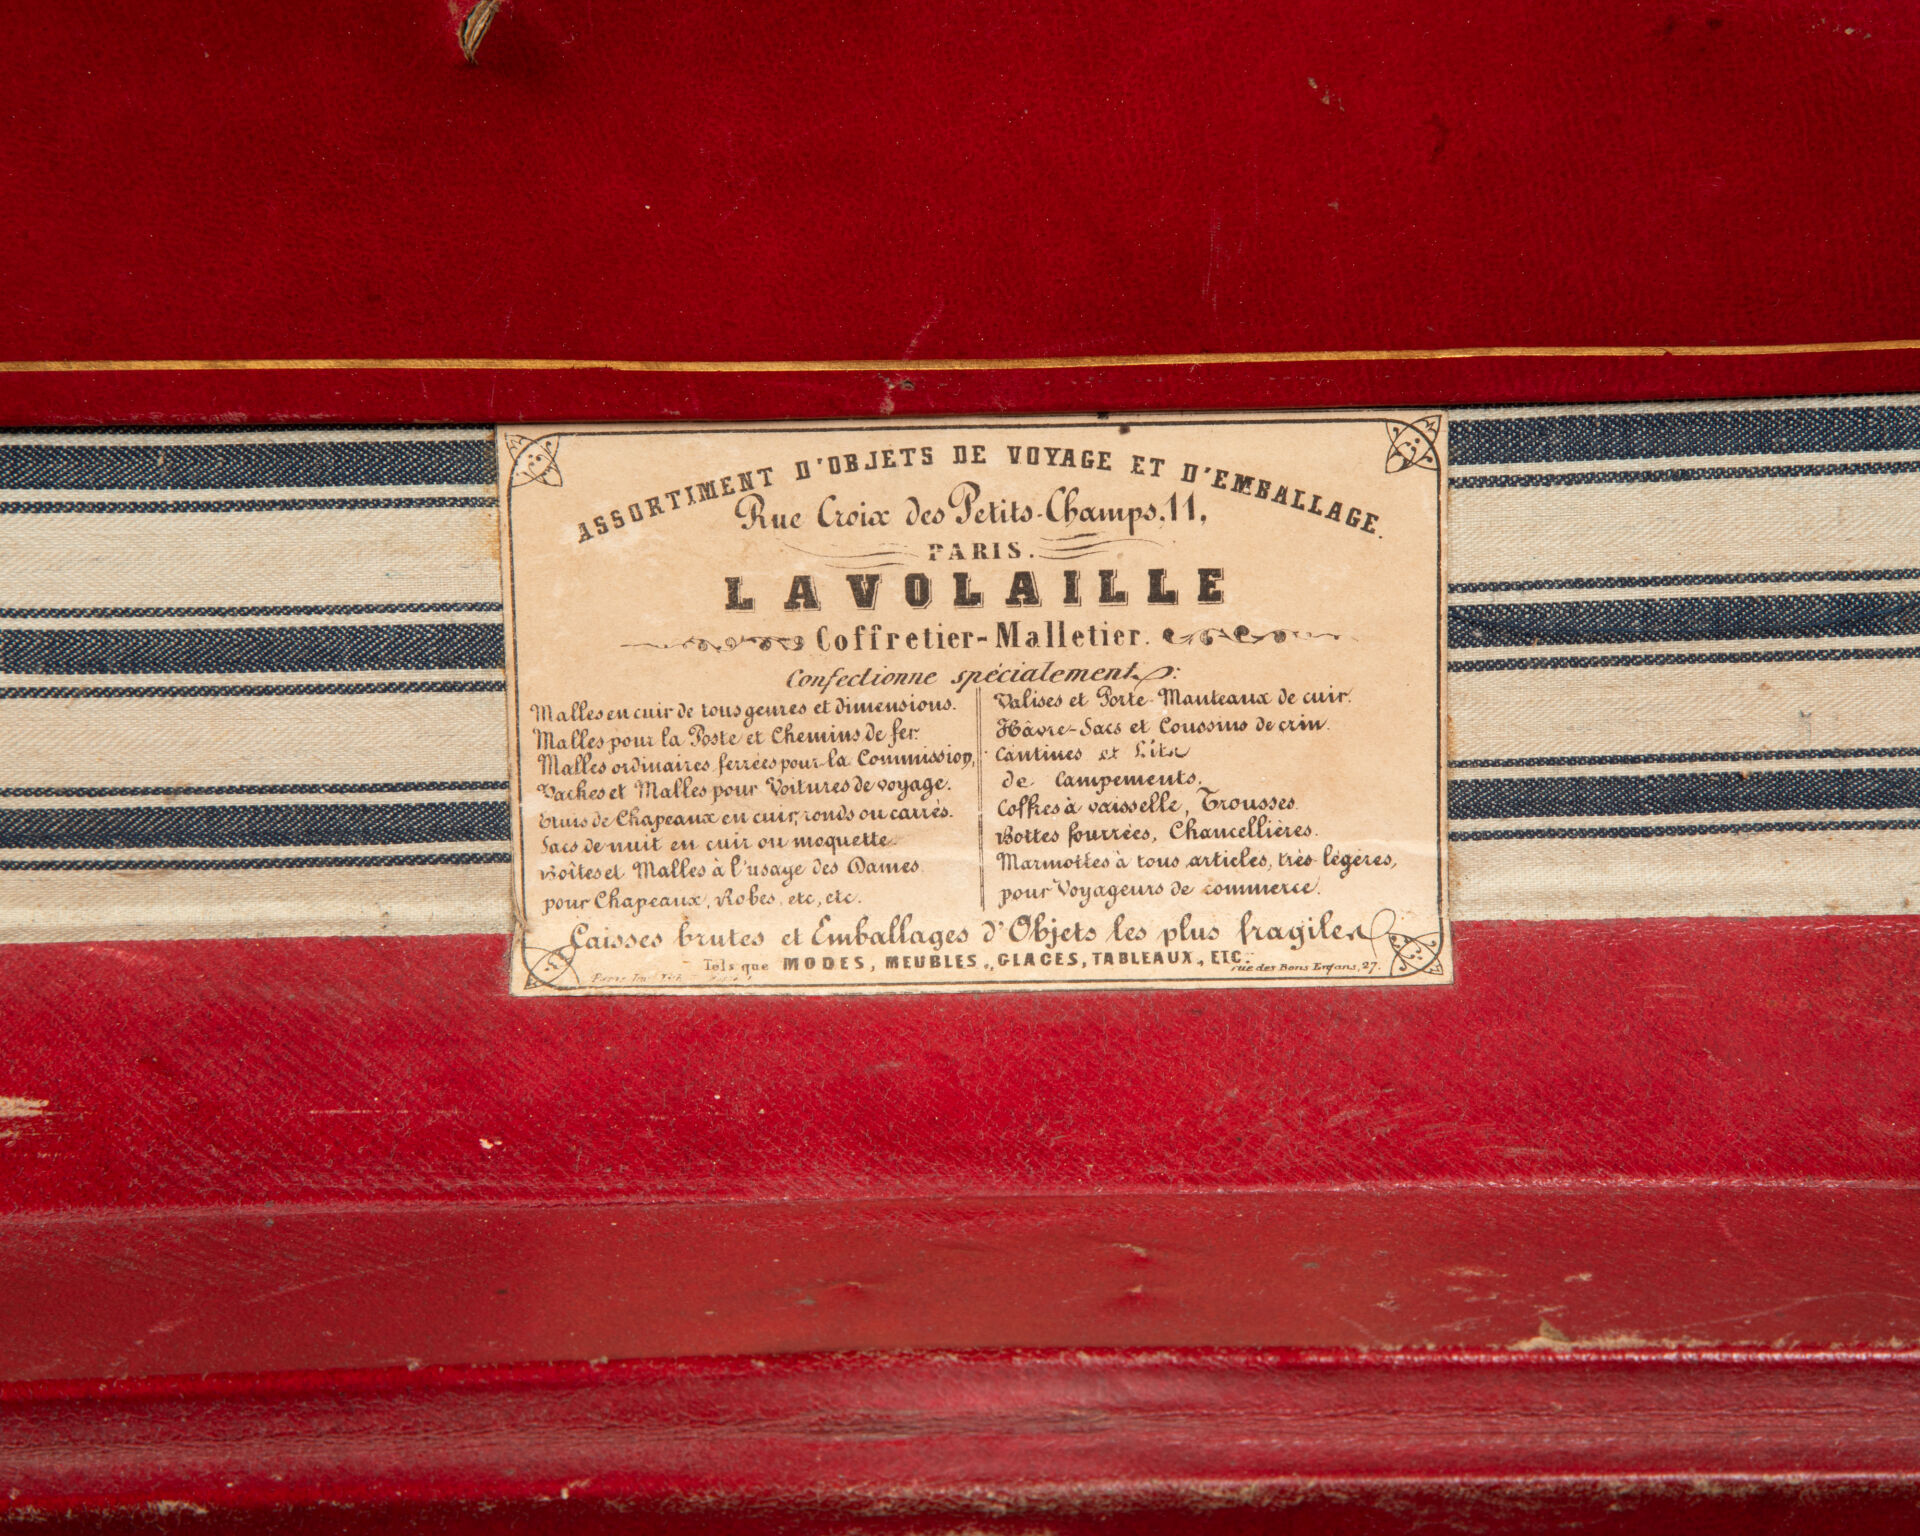 ASSORTIMENT D'OBJETS DE VOYAGE ET D'EMBALLAGE.
Rue Croix des Petits-Champs, 11,
PARIS.
LAVOLAILLE
Coffretier-Malletier.
Confectionne spécialement:
Malles en cuir de tous genres et dimensions.
Malles pour la Poste et Chemins de fer.
Malles ordinaires ferrées pour la Commission,
Vaches et Malles pour Voitures de voyage.
Étuis de Chapeaux en cuir, ronds ou carrés.
Sacs de nuit en cuir ou moquette.
Boîtes et Malles à l'usage des Dames
pour Chapeaux, Robes, etc, etc.
Valises et Porte-Manteaux de cuir.
Hâvre-Sacs et Coussins de crin.
Cantines et Lits
de Campements.
Coffres à vaisselle, Trousses.
Bottes fourrées, Chancellières.
Marmottes à tous articles, très légères,
pour Voyageurs de commerce.
Caisses brutes et Emballages d'Objets les plus fragiles
Tels que MODES, MEUBLES, GLACES, TABLEAUX, ETC.
rue des Bons Enfans, 27.